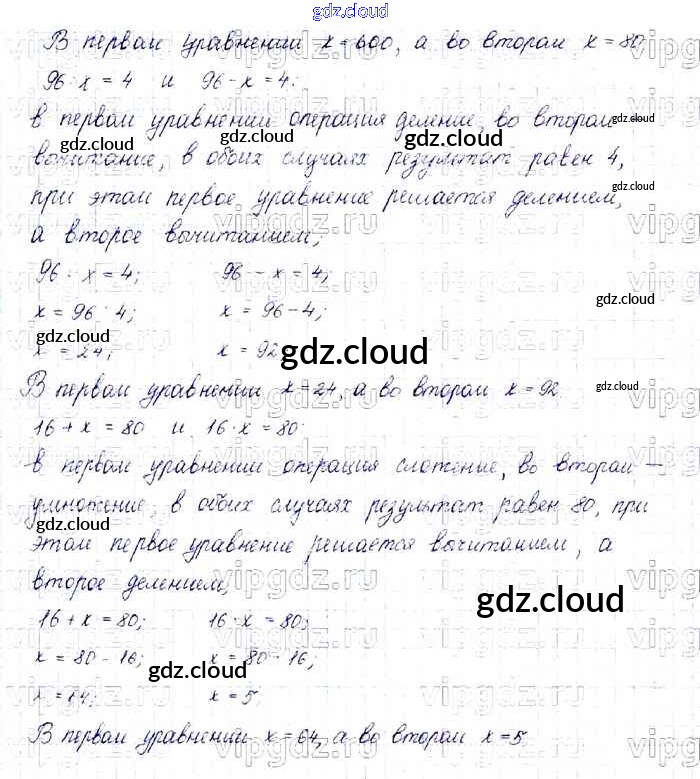 gdz.cloud
В первом уравнении x=600, а во втором x=80
96:x=4 и 96-x=4:
в первом уравнении операция деление, во втором -
вычитание, в обоих случаях результат равен 4,
при этом первое уравнение решается делением,
а второе вычитанием;
96:x=4; 96-x=4;
x=96:4; x=96-4;
x=24; x=92
В первом уравнении x=24, а во втором x=92
16+x=80 и 16·x=80:
в первом уравнении операция сложение, во втором -
умножение, в обоих случаях результат равен 80, при
этом первое уравнение решается вычитанием, а
второе делением;
16+x=80; 16·x=80;
x=80-16; x=80-16;
x=64; x=5;
В первом уравнении x=64, а во втором x=5